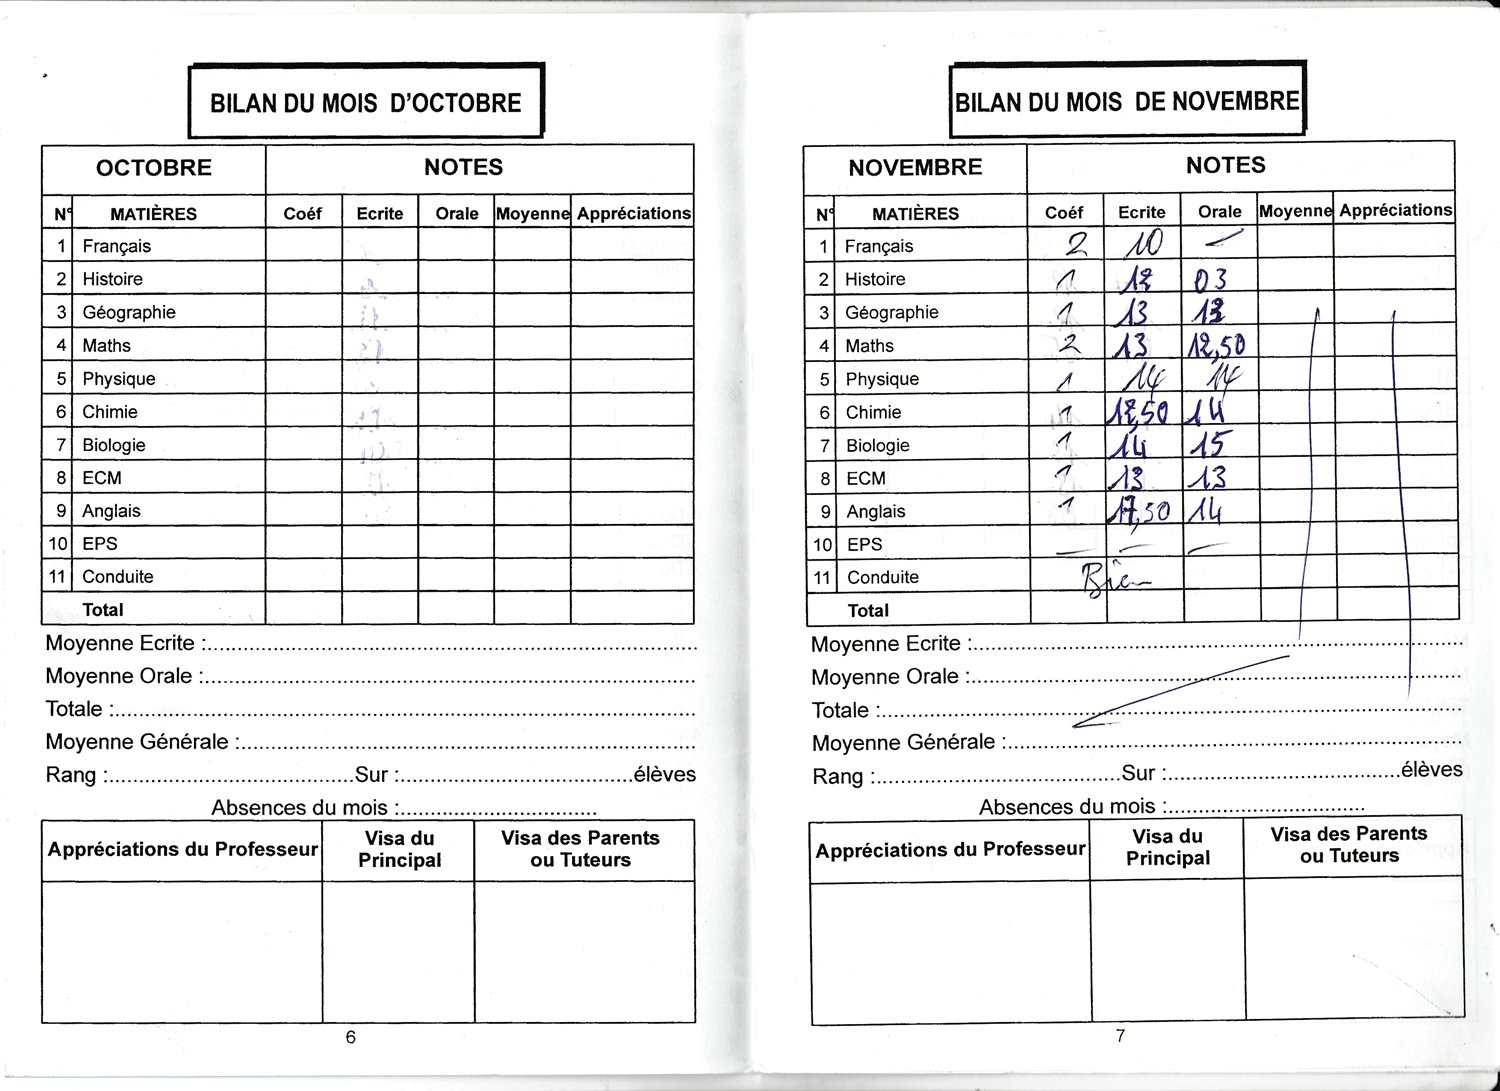 BILAN DU MOIS D'OCTOBRE
OCTOBRE NOTES
N° MATIÈRES Coéf Ecrite Orale Moyenne Appréciations
1 Français
2 Histoire
3 Géographie
4 Maths
5 Physique
6 Chimie
7 Biologie
8 ECM
9 Anglais
10 EPS
11 Conduite
Total
Moyenne Ecrite :
Moyenne Orale :
Totale :
Moyenne Générale :
Rang : Sur : élèves
Absences du mois :
Appréciations du Professeur Visa du Principal Visa des Parents ou Tuteurs
6
BILAN DU MOIS DE NOVEMBRE
NOVEMBRE NOTES
N° MATIÈRES Coéf Ecrite Orale Moyenne Appréciations
1 Français 2 10 —
2 Histoire 1 12 03
3 Géographie 1 13 13
4 Maths 2 13 12,50
5 Physique 1 14 14
6 Chimie 1 12,50 14
7 Biologie 1 14 15
8 ECM 1 13 13
9 Anglais 1 17,50 14
10 EPS — — —
11 Conduite Bien
Total
Moyenne Ecrite :
Moyenne Orale :
Totale :
Moyenne Générale :
Rang : Sur : élèves
Absences du mois :
Appréciations du Professeur Visa du Principal Visa des Parents ou Tuteurs
7